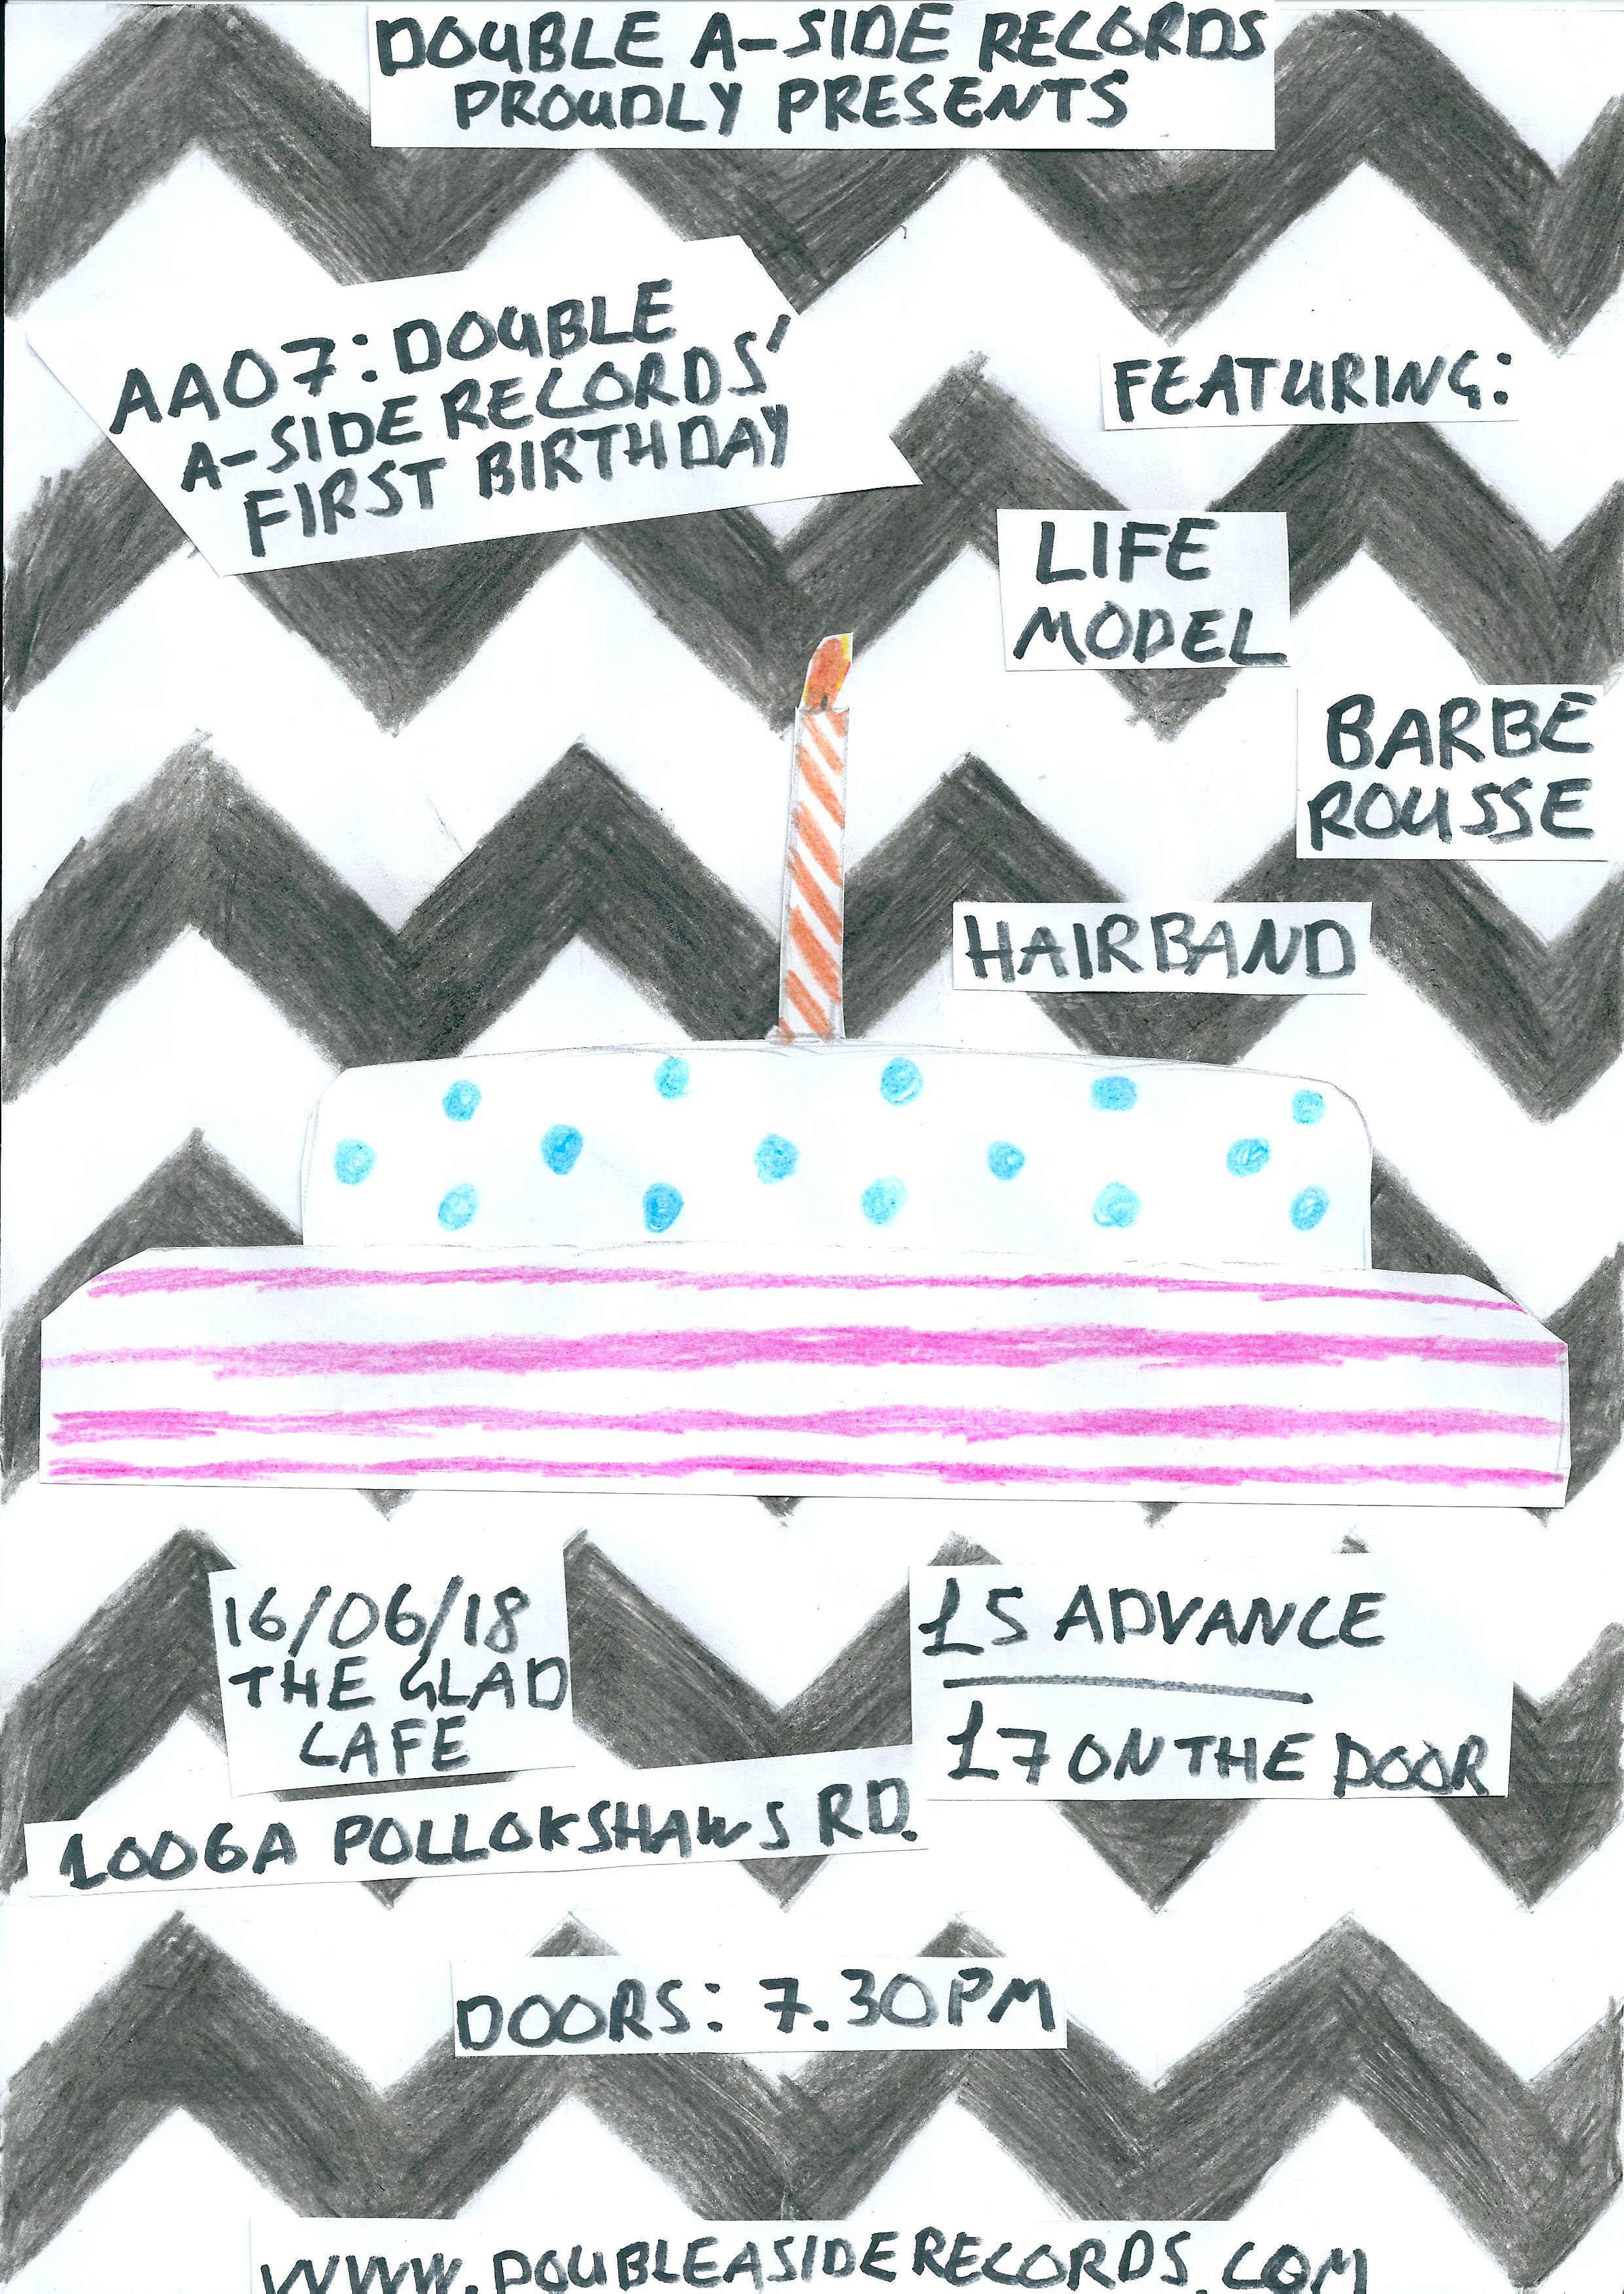 DOUBLE A-SIDE RECORDS
PROUDLY PRESENTS
AA07: DOUBLE
A-SIDE RECORDS'
FIRST BIRTHDAY
FEATURING:
LIFE
MODEL
BARBE
ROUSSE
HAIRBAND
16/06/18
THE GLAD
CAFE
1006A POLLOKSHAWS RD.
£5 ADVANCE
£7 ON THE DOOR
DOORS: 7.30PM
WWW.DOUBLEASIDERECORDS.COM